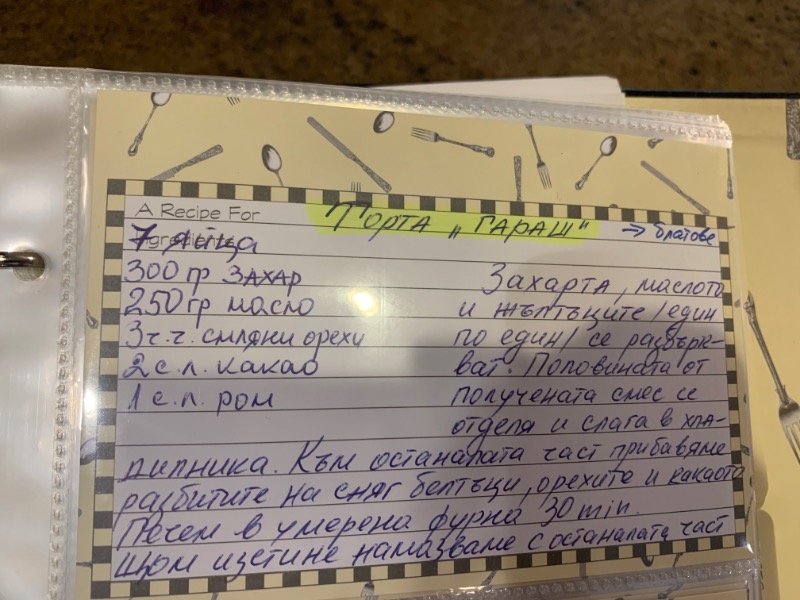 A Recipe For
Торта „ГАРАШ" → блатове
Ingredients
7 яйца
300 гр ЗАХАР
250 гр масло
3 ч.ч. смляни орехи
2 с.л. какао
1 с.л. ром
Захарта, маслото
и жълтъците /един
по един/ се разбърк-
ват. Половината от
получената смес се
отделя и слага в хла-
дилника. Към останалата част прибавяме
разбитите на сняг белтъци, орехите и какаото
Печем в умерена фурна 30 min.
Щом изстине намазваме с останалата част